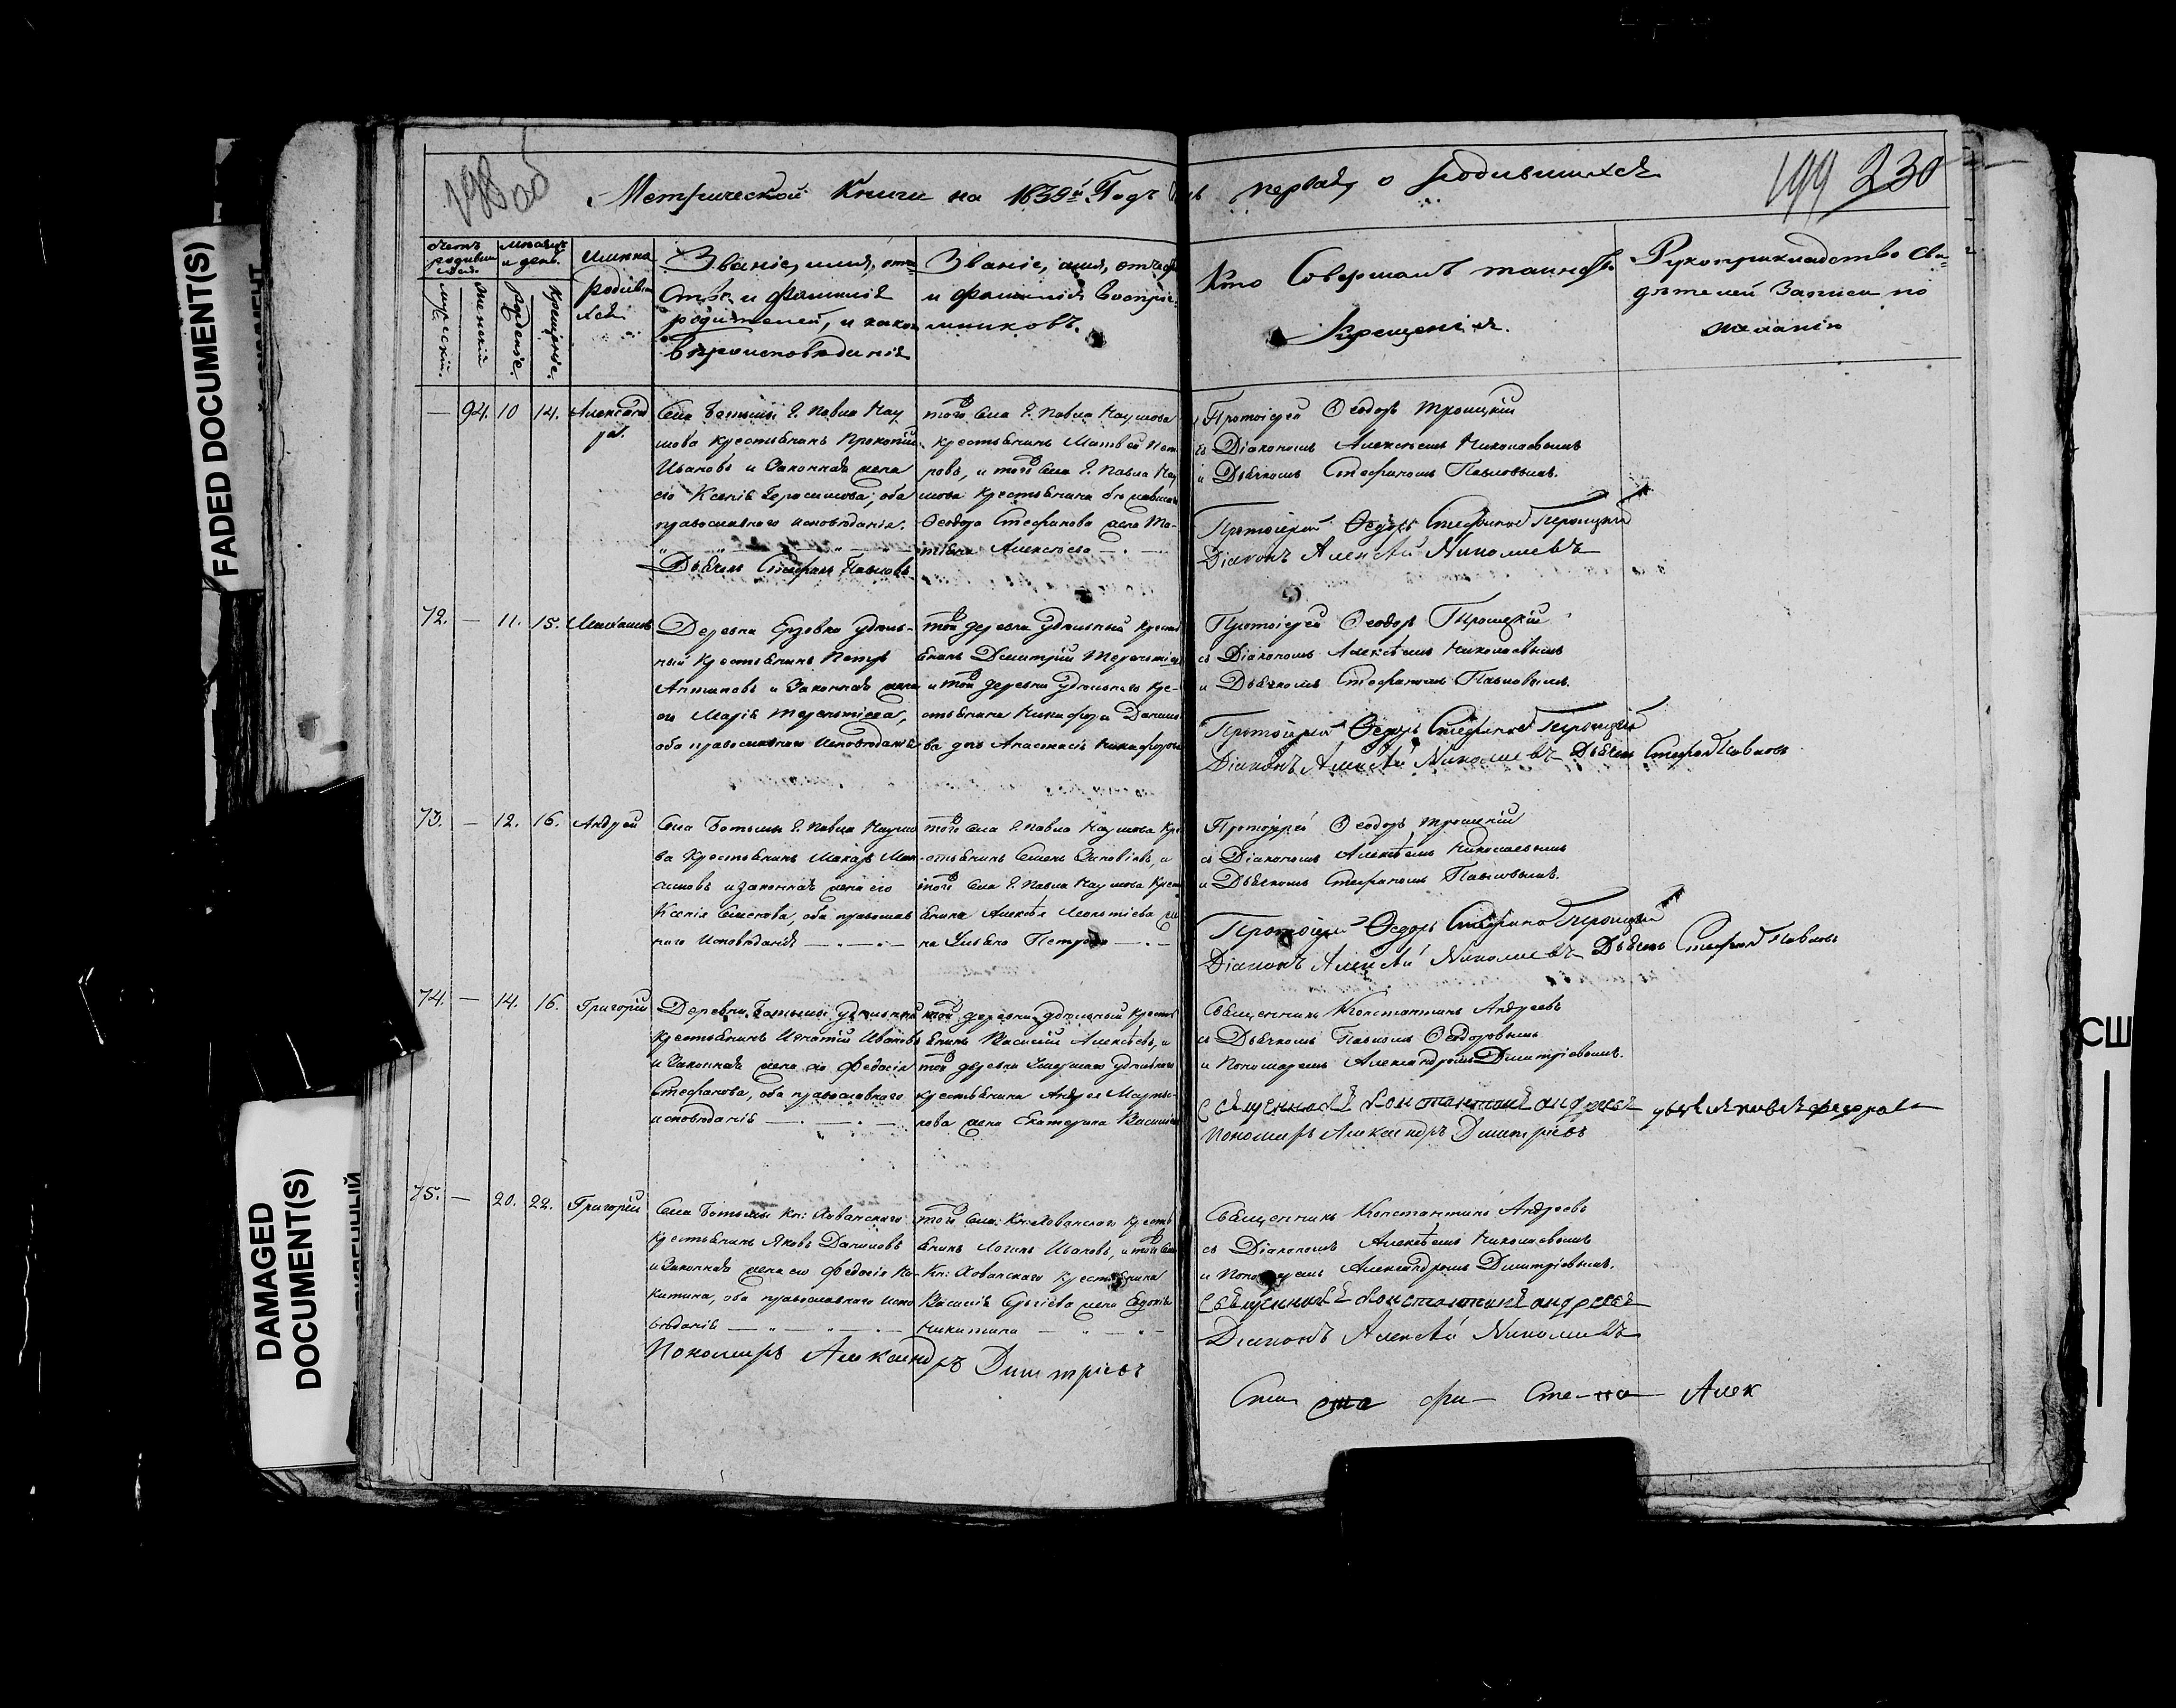 198 об
Метрической Книги на 1839й Годъ часть первая, о родившихся
199 230
Счетъ родившихся.
мужескій.
женскій
Мѣсяцъ и день.
рожденіе.
крещеніе.
Имена родившихся
Званіе, имя, отче
ство и фамилія
родителей, и какого
вѣроисповѣданія
Званіе, имя, отчество
и фамилія воспріе
мниковъ.
Кто Совершалъ таинство
Крещенія.
Рукоприкладство сви=
дѣтелей Записи по
желанію
— 94. 10 14. Александра.
Села Батыли Г. Павла Нау
мова крестьянинъ Прокопій
Ивановъ и Законная жена
его Ксенія Герасимова; оба
православного исповѣданія.
Дьячекъ Стефанъ Павловъ
того села Г. Павла Наумова
крестьянинъ Матвей Пет
ровъ, и того села Г. Павла Нау
мова крестьянина
Ѳеодора Стефанова жена Та-
тіана Алексѣева
Протоіерей Ѳеодоръ Троицкій
съ Діакономъ Алексѣемъ Николаевымъ
и Дьячкомъ Стефаномъ Павловымъ.
Протоіерей Ѳедоръ Стефановъ Троицкій
Діаконъ Алексѣй Николаевъ
72. — 11. 15.
Деревни удѣль-
ный Крестьянинъ Петръ
Антиповъ и Законная жена
его Марія Терентіева,
оба православного исповѣданія
той деревни удѣльный крестья
янинъ Димитрій Терентіевъ
и той деревни удѣльнаго кре-
стьянина Никифора Данило
ва дочь Анастасія Никифорова
Протоіерей Ѳеодоръ Троицкій
съ Діакономъ Алексѣемъ Николаевымъ
и Дьячкомъ Стефаномъ Павловымъ.
Протоіерей Ѳедоръ Стефановъ Троицкій
Діаконъ Алексѣй Николаевъ Дьячекъ Стефанъ Павловъ
73. — 12. 16. Андрей
Села Батыли Г. Павла Наумо
ва Крестьянинъ Макаръ Мак
симовъ и законная жена его
Ксенія Семенова, оба православ
ного исповѣданія
того села Г. Павла Наумова кре
стьянинъ Семенъ Зиновіевъ, и
того села Г. Павла Наумова крест
янина Алексѣя Леонтіева же
на Ульяна Петрова
Протоіерей Ѳеодоръ Троицкій
съ Діакономъ Алексѣемъ Николаевымъ
и Дьячкомъ Стефаномъ Павловымъ.
Протоіерей Ѳедоръ Стефановъ Троицкій
Діаконъ Алексѣй Николаевъ Дьячекъ Стефанъ Павловъ
74. — 14. 16. Григорій
Деревни Батыли удѣльный
крестьянинъ Игнатій Ивановъ
и Законная жена его Федосія
Стефанова, оба православного
исповѣданія
той деревни удѣльный крестья
янинъ Василій Алексѣевъ, и
той деревни удѣльного
крестьянина Андрея Марты-
нова жена Екатерина Василіева
Священникъ Константинъ Андреевъ
съ Дьячкомъ Павломъ Ѳеодоровымъ
и Пономаремъ Александромъ Димитріевымъ.
Священникъ Константинъ Андреевъ дьячекъ Павелъ Федоровъ
Пономарь Александръ Дмитріевъ
75. — 20. 22. Григорій
Села Батыли Кн: Хованского
крестьянинъ Яковъ Даниловъ
и Законная жена его Федосія Ни-
китина, оба православнаго испо
вѣданія
Пономарь Александръ Дмитріевъ
того села Кн: Хованского крестья
янинъ Логинъ Ивановъ, и того села
Кн: Хованского крестьянина
Василія Сергіева жена Евдокія
Никитина
Священникъ Константинъ Андреевъ
съ Діакономъ Алексѣемъ Николаевымъ
и Пономаремъ Александромъ Димитріевымъ.
Священникъ Константинъ Андреевъ
Діаконъ Алексѣй Николаевъ
Алек
FADED DOCUMENT(S)
DAMAGED
DOCUMENT(S)
США